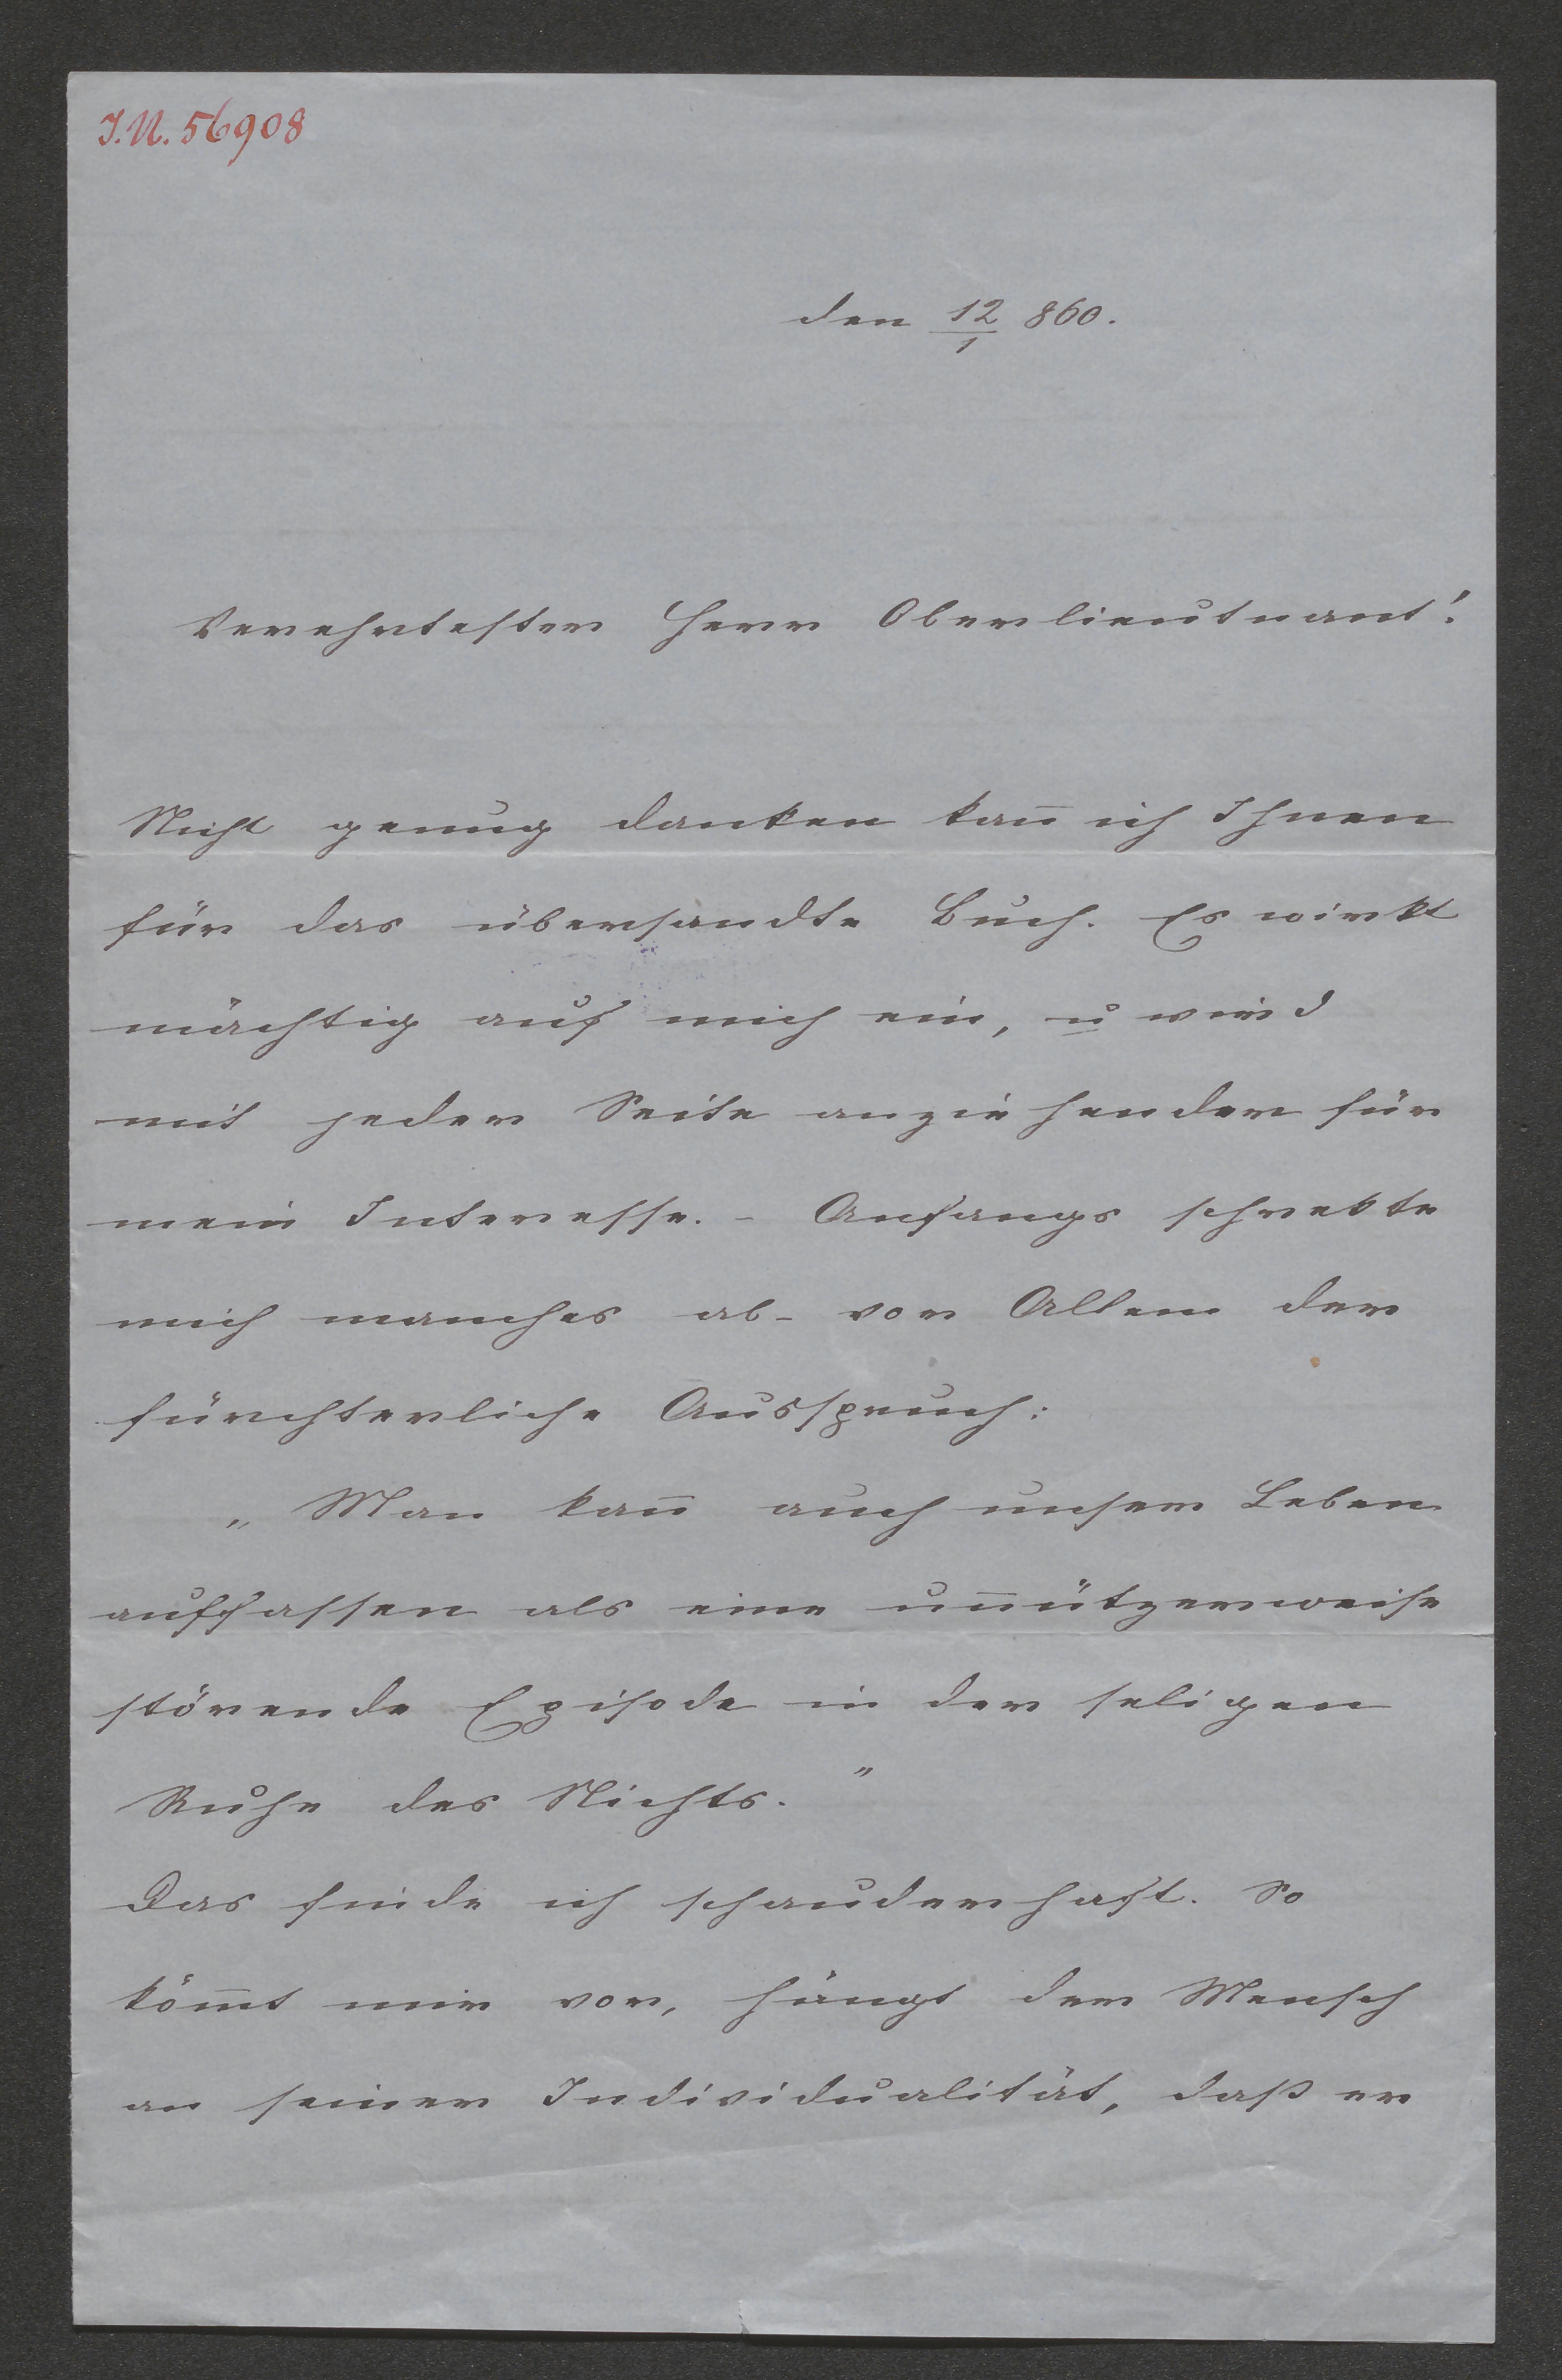 I.N. 56908
den 12/1 860.
Verehrtester Herr Oberlieutnant!
Nicht genug danken kan̅ ich Ihnen
für das übersandte Buch. Es wirkt
mächtig auf mich ein, u wird
mit jeder Seite anziehender für
mein Interesse. - Anfangs schrekte
mich manches ab - vor Allem der
fürchterliche Ausspruch:
„Man kan̅ auch unser Leben
auffassen als eine un̅ützerweise
störende Episode in der seligen
Ruhe des Nichts."
Das finde ich schauderhaft. So
köm̅t mir vor, hängt der Mensch
an seiner Individualität, daß er